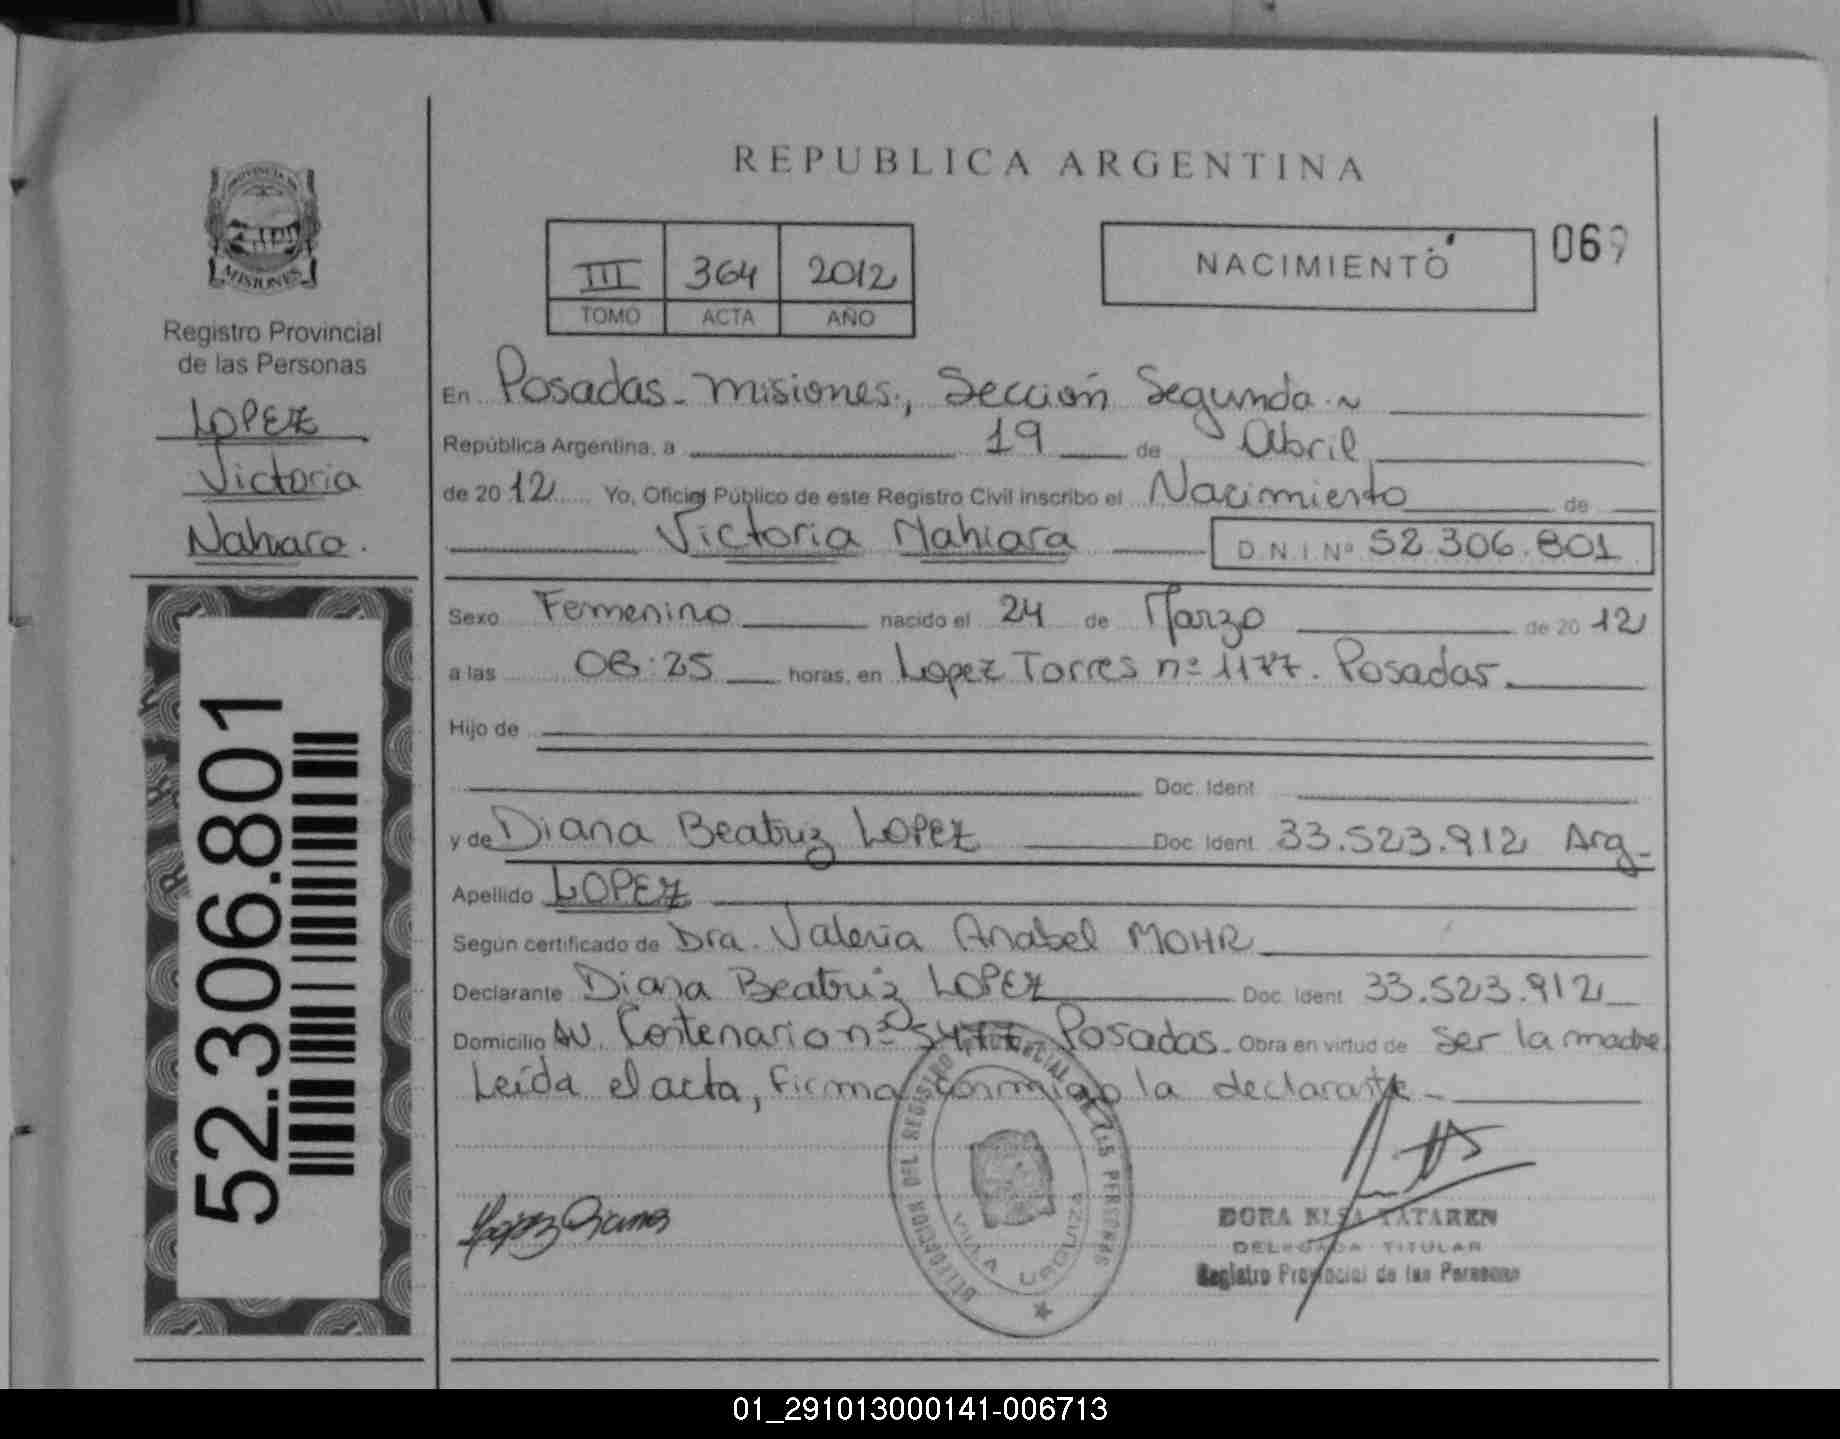 REPUBLICA ARGENTINA
PROVINCIA DE
MISIONES
Registro Provincial
de las Personas
LOPEZ
Victoria
Nahiara.
52.306.801
III 364 2012
TOMO ACTA AÑO
NACIMIENTO
069
En Posadas - Misiones, Sección Segunda.~
República Argentina, a 19 de Abril
de 2012 Yo, Oficial Público de este Registro Civil inscribo el Nacimiento de
Victoria Nahiara D.N.I. Nº 52.306.801
Sexo Femenino nacido el 24 de Marzo de 2012
a las 08:25 horas, en Lopez Torres nº 1177. Posadas.
Hijo de
Doc. Ident.
y de Diana Beatriz LOPEZ Doc. Ident. 33.523.912 Arg_
Apellido LOPEZ
Según certificado de Dra. Valeria Anabel MOHR
Declarante Diana Beatriz LOPEZ Doc. Ident. 33.523.912
Domicilio Av. Centenario nº Posadas - Obra en virtud de ser la madre
Leída el acta, firma conmigo la declarante -
López Diana
DEL REGISTRO PROVINCIAL DE LAS PERSONAS
VILLA URQUIZA
DORA ELSA TATAREN
DELEGADA TITULAR
Registro Provincial de las Personas
01_291013000141-006713